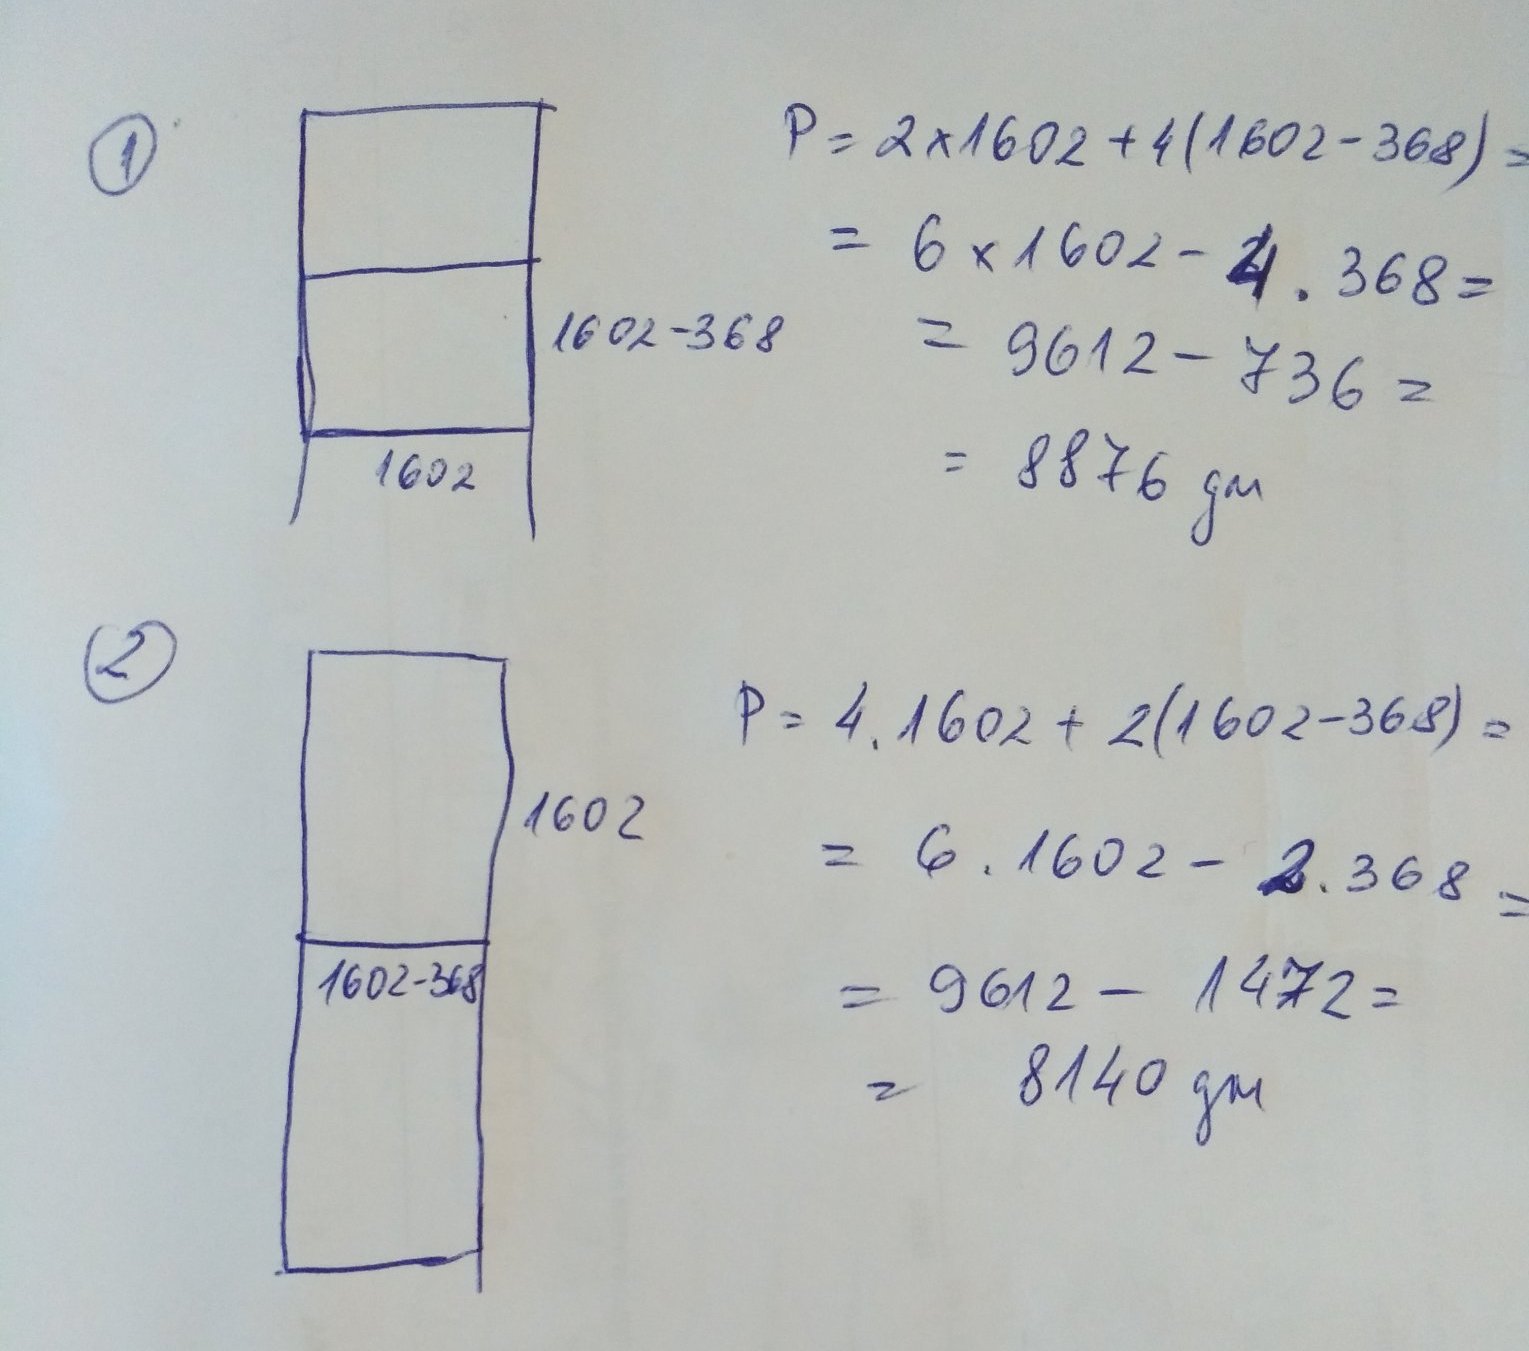 1
P = 2x1602 + 4(1602-368) =
= 6 x 1602 - 4 . 368 =
1602-368
= 9612 - 736 =
1602
= 8876 дм
2
P = 4.1602 + 2(1602-368) =
1602
= 6 . 1602 - 2. 368 =
1602-368
= 9612 - 1472 =
= 8140 дм